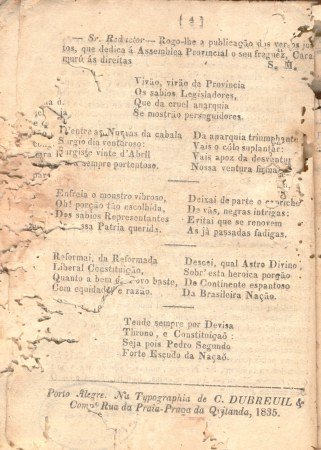 ( 4 )
— Sr. Redactor — Rogo-lhe a publicação dos versos
tos, que dedica á Assemblea Provincial o seu freguez, Cara
murú ás direitas
S. M.
Vivão, virão da Provincia
Os sabios Legisladores,
Que da cruel anarquia
Se mostrão perseguidores.
D'entre as Nuvens da cabala
Surgio dia ventoroso:
Surgiste vinte d'Abril
sempre portentoso.
Enfreia o monstro vibroso,
Oh! porção tão escolhida,
Dos sabios Representantes
ssa Patria querida.
Reformai, da Reformada
Liberal Constituição,
Quanto a bem do Povo baste,
Com equidade e razão.
Da anarquia triumphante
Vais o cólo suplantar:
Vais apoz da desventura
Nossa ventura firmar
Deixai de parte o capricho
De vãs, negras intrigas:
Evitai que se renovem
As já passadas fadigas.
Descei, qual Astro Divino
Sobr' esta heroica porção
Do Continente espantoso
Da Brasileira Nação.
Tende sempre por Devisa
Throno, e Constituiçaõ:
Seja pois Pedro Segundo
Forte Escudo da Naçaõ.
Porto Alegre. Na Typographia de C. DUBREUIL &
Compª Rua da Praia-Praça da Quitanda, 1835.